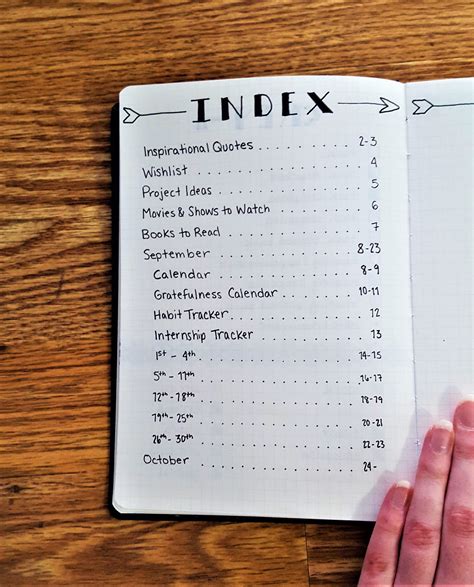 INDEX
Inspirational Quotes . . . . . . . . . . 2-3
Wishlist . . . . . . . . . . . . . . . . 4
Project Ideas . . . . . . . . . . . . . 5
Movies & Shows to Watch . . . . . . . . 6
Books to Read . . . . . . . . . . . . . 7
September . . . . . . . . . . . . . . . 8-23
Calendar . . . . . . . . . . . . . . . 8-9
Gratefulness Calendar . . . . . . . . . 10-11
Habit Tracker . . . . . . . . . . . . . 12
Internship Tracker . . . . . . . . . . 13
1st - 4th . . . . . . . . . . . . . . . 14-15
5th - 11th . . . . . . . . . . . . . . 16-17
12th - 18th . . . . . . . . . . . . . . 18-19
19th - 25th . . . . . . . . . . . . . . 20-21
26th - 30th . . . . . . . . . . . . . . 22-23
October . . . . . . . . . . . . . . . . 24-